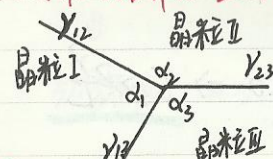 γ12
晶粒Ⅱ
晶粒Ⅰ
α2
γ23
α1
α3
γ13
晶粒Ⅲ